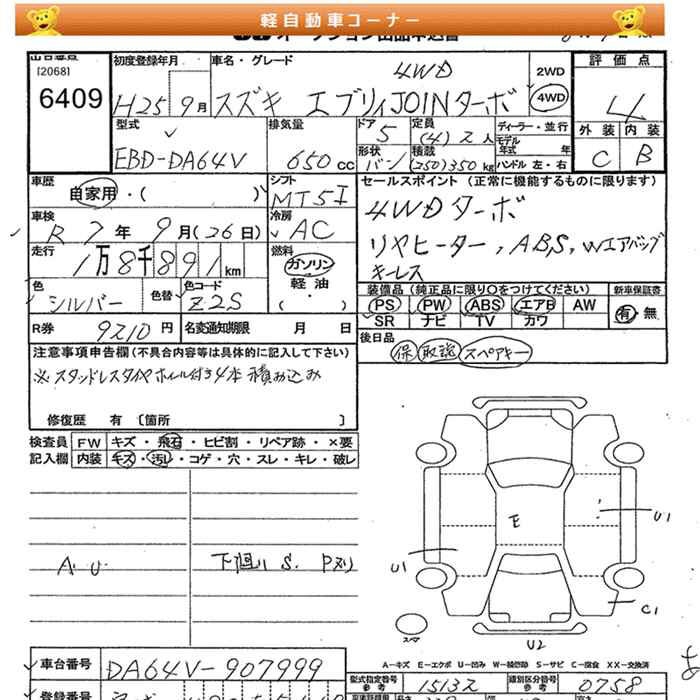 軽自動車コーナー
[2068]
6409
初度登録年月
H25 9月
車名・グレード
4WD
スズキ エブリィJOINターボ
2WD
4WD
評価点
4
外装 内装
C B
型式
EBD-DA64V
排気量
650cc
ドア
5
形状
バン
定員
(4) 2人
積載
(250) 350kg
ディーラー・並行
モデル年式 年
ハンドル 左・右
車歴
自家用・( )
シフト
MT5I
車検
R7年9月(26日)
冷房
AC
走行
1万8千891km
燃料
ガソリン
軽油
・( )
色
シルバー
色替
色コード
Z2S
R券 9210円
名変通知期限 月 日
セールスポイント(正常に機能するものに限ります)
4WDターボ
リヤヒーター, ABS, Wエアバッグ
キーレス
装備品(純正品に限り○をつけてください)
PS PW ABS エアB AW
SR ナビ TV カワ
新車保証書
有・無
後日品
保 取説 スペアキー
注意事項申告欄(不具合内容等は具体的に記入して下さい)
※スタッドレスタイヤ ホイル付き4本 積み込み
修復歴 有[箇所 ]
検査員記入欄
FW キズ・飛石・ヒビ割・リペア跡・×要
内装 キズ・汚レ・コゲ・穴・スレ・キレ・破レ
A. U.
S. Pズリ
E
U1
U1
C1
U2
スペア
A-キズ E-エクボ U-凹み W-補修跡 S-サビ C-腐食 XX-交換済
車台番号
DA64V-907999
登録番号
型式指定番号
参考
15132
類別区分番号
参考
0758